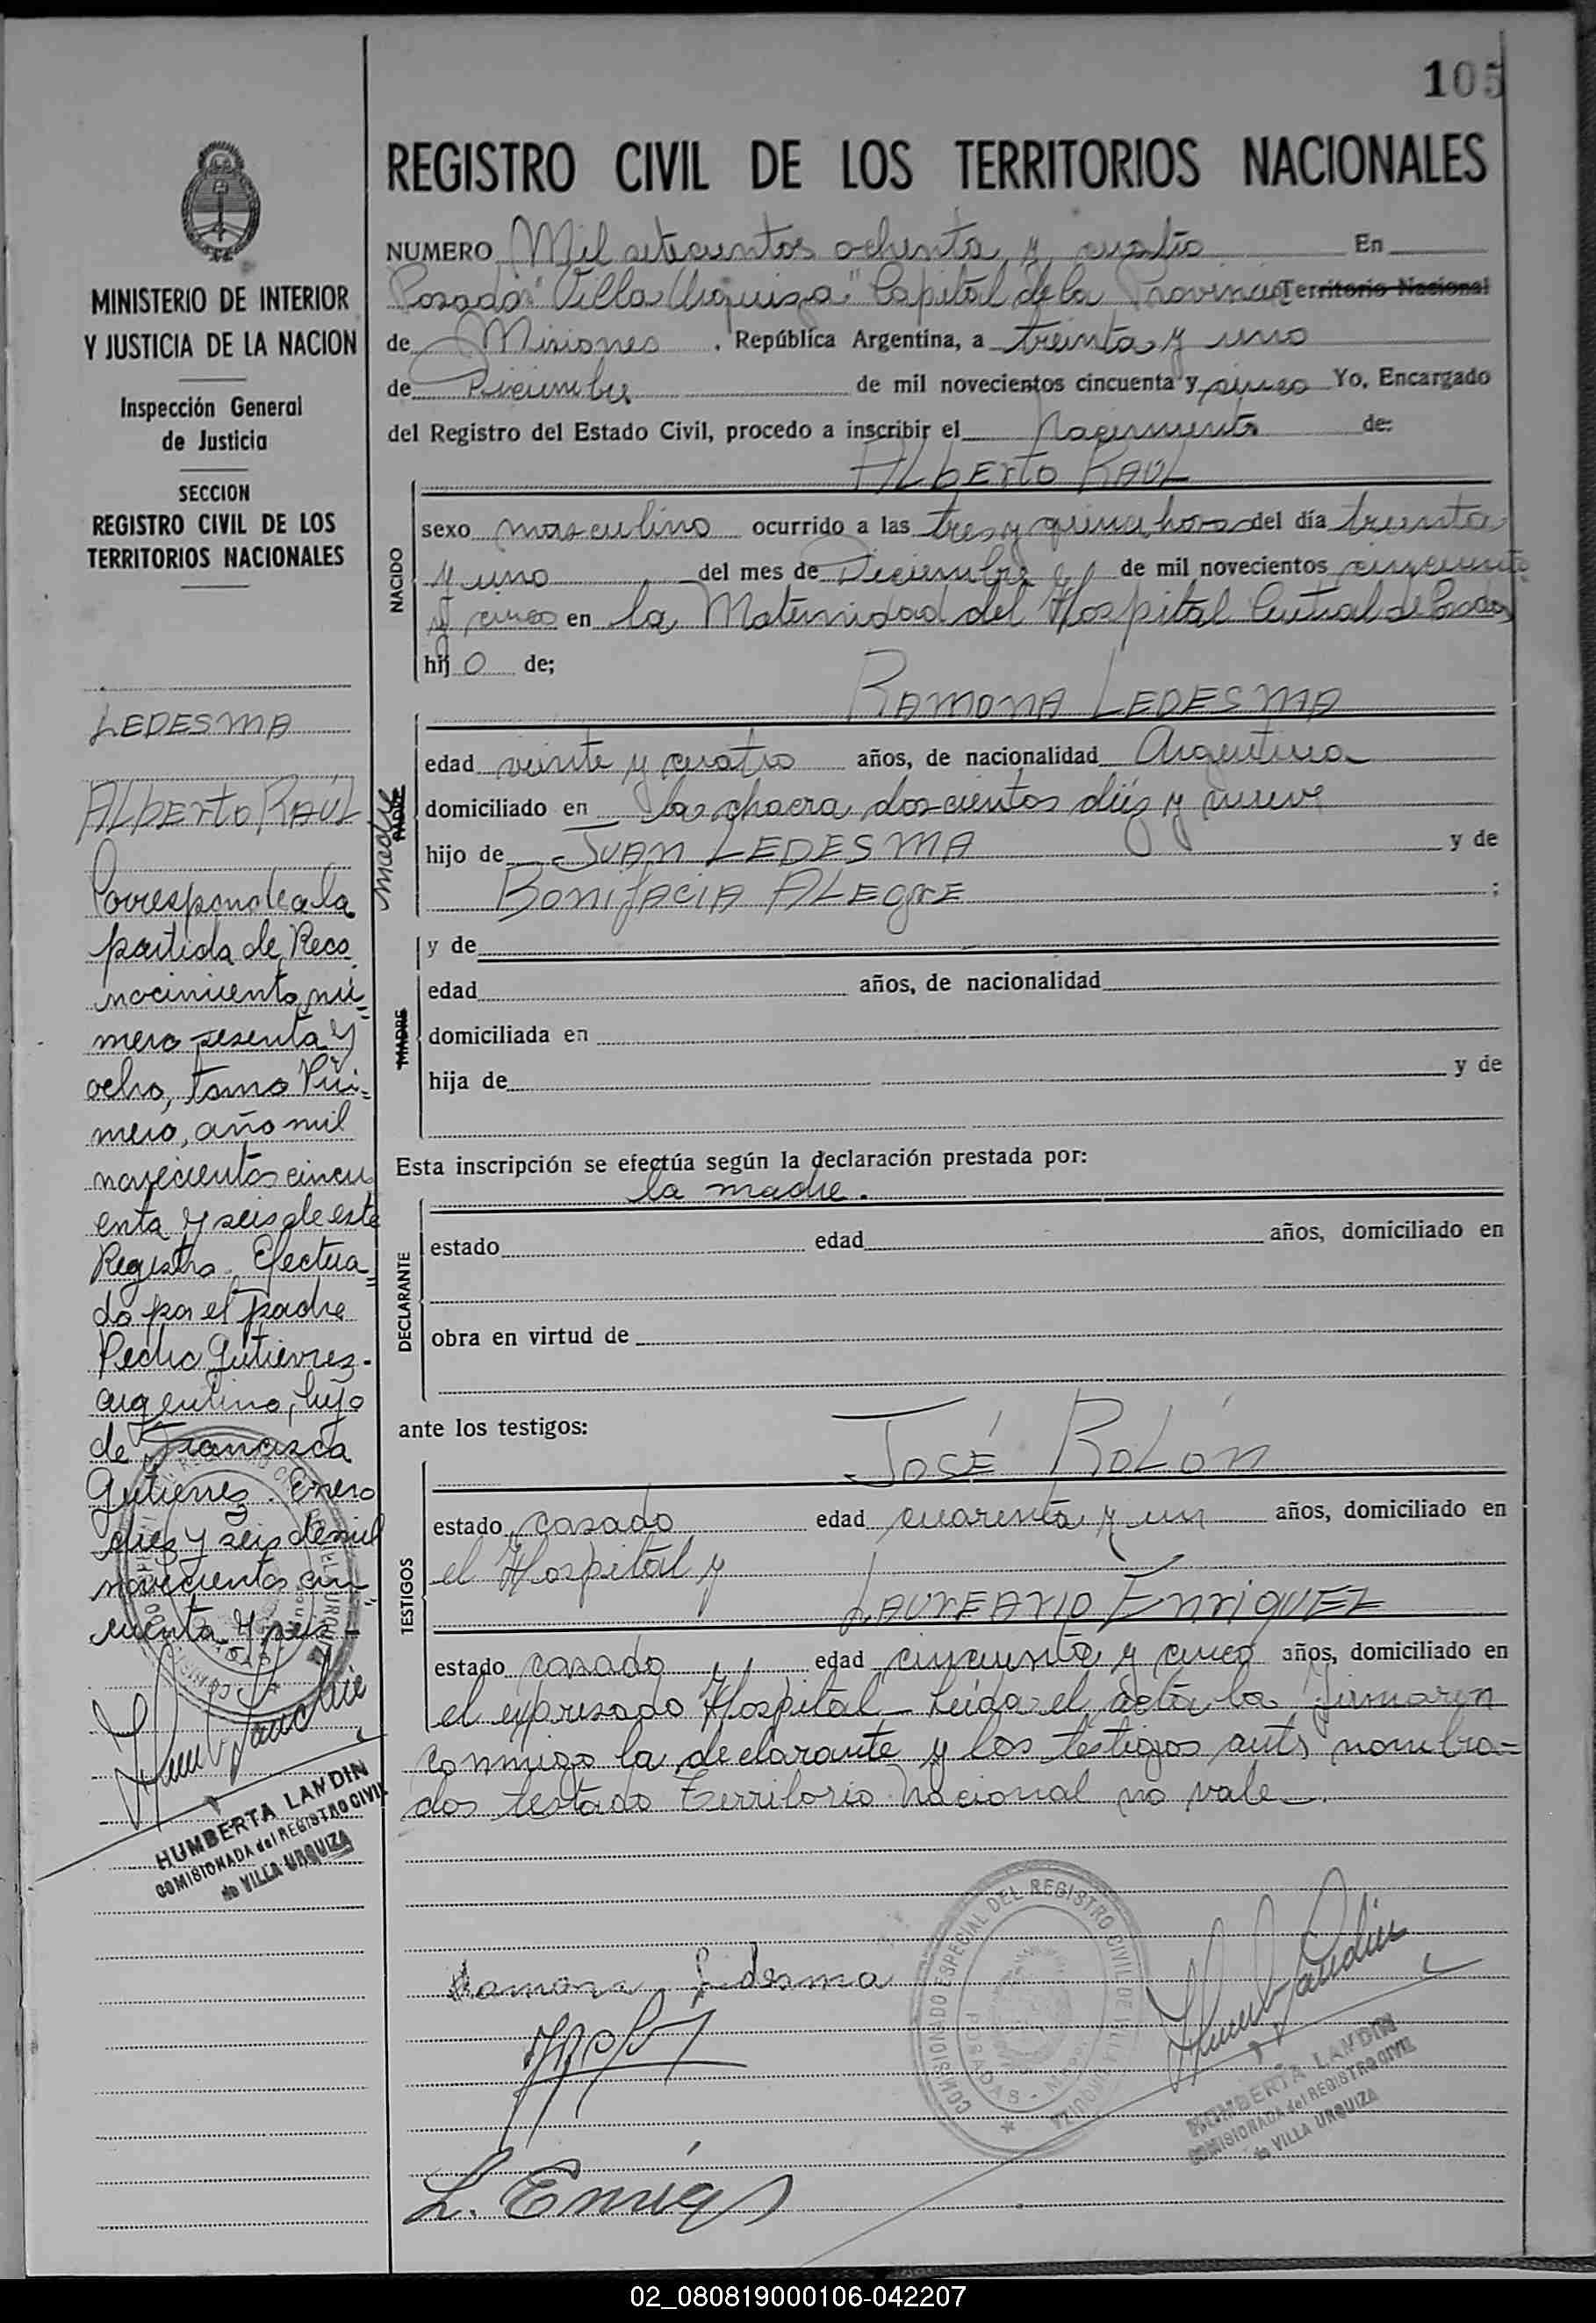 105
REGISTRO CIVIL DE LOS TERRITORIOS NACIONALES
MINISTERIO DE INTERIOR
Y JUSTICIA DE LA NACION
Inspección General
de Justicia
SECCION
REGISTRO CIVIL DE LOS
TERRITORIOS NACIONALES
LEDESMA
ALbErto RAÚL
Corresponde a la
partida de Reco
nocimiento nú=
mero sesenta y
ocho, tomo Pri=
mero, año mil
novecientos cincu
enta y seis de este
Registro. Efectua=
do por el padre
Pedro Gutierrez.
argentino, hijo
de Francisca
Gutierrez. Enero
diez y seis de mil
novecientos cin=
cuenta y seis.-
HUMBERTA LANDIN
COMISIONADA del REGISTRO CIVIL
de VILLA URQUIZA
NUMERO Mil setecientos ochenta y cuatro En
Posadas "Villa Urquiza" Capital de la Provincia Territorio Nacional
de Misiones, República Argentina, a treinta y uno
de Diciembre de mil novecientos cincuenta y cinco Yo, Encargado
del Registro del Estado Civil, procedo a inscribir el Nacimiento de:
ALbErto RAÚL
NACIDO
sexo masculino ocurrido a las tres y quince horas del día treinta
y uno del mes de Diciembre de mil novecientos cincuenta
y cinco en la Maternidad del Hospital Central de Posadas
hijo de;
RAMONA LEDESMA
PADRE madre
edad veinte y cuatro años, de nacionalidad Argentina
domiciliado en la chacra doscientos diez y nueve
hijo de JUAN LEDESMA y de
BONIfACIA ALEgrE ;
MADRE
y de
edad años, de nacionalidad
domiciliada en
hija de y de
Esta inscripción se efectúa según la declaración prestada por:
la madre.
DECLARANTE
estado edad años, domiciliado en
obra en virtud de
ante los testigos:
JOSÉ ROLÓN
TESTIGOS
estado casado edad cuarenta y un años, domiciliado en
el Hospital y
LAUREANO ENriqUEZ
estado casado edad cincuenta y cinco años, domiciliado en
el expresado Hospital_ Leída el acta la firmaron
conmigo la declarante y los testigos ants nombra=
dos testado Territorio Nacional no vale_.
Ramona Ledesma
COMISIONADO ESPECIAL DEL REGISTRO CIVIL DE VILLA URQUIZA
POSADAS - Misiones
HUMBERTA LANDIN
COMISIONADA del REGISTRO CIVIL
de VILLA URQUIZA
02_080819000106-042207